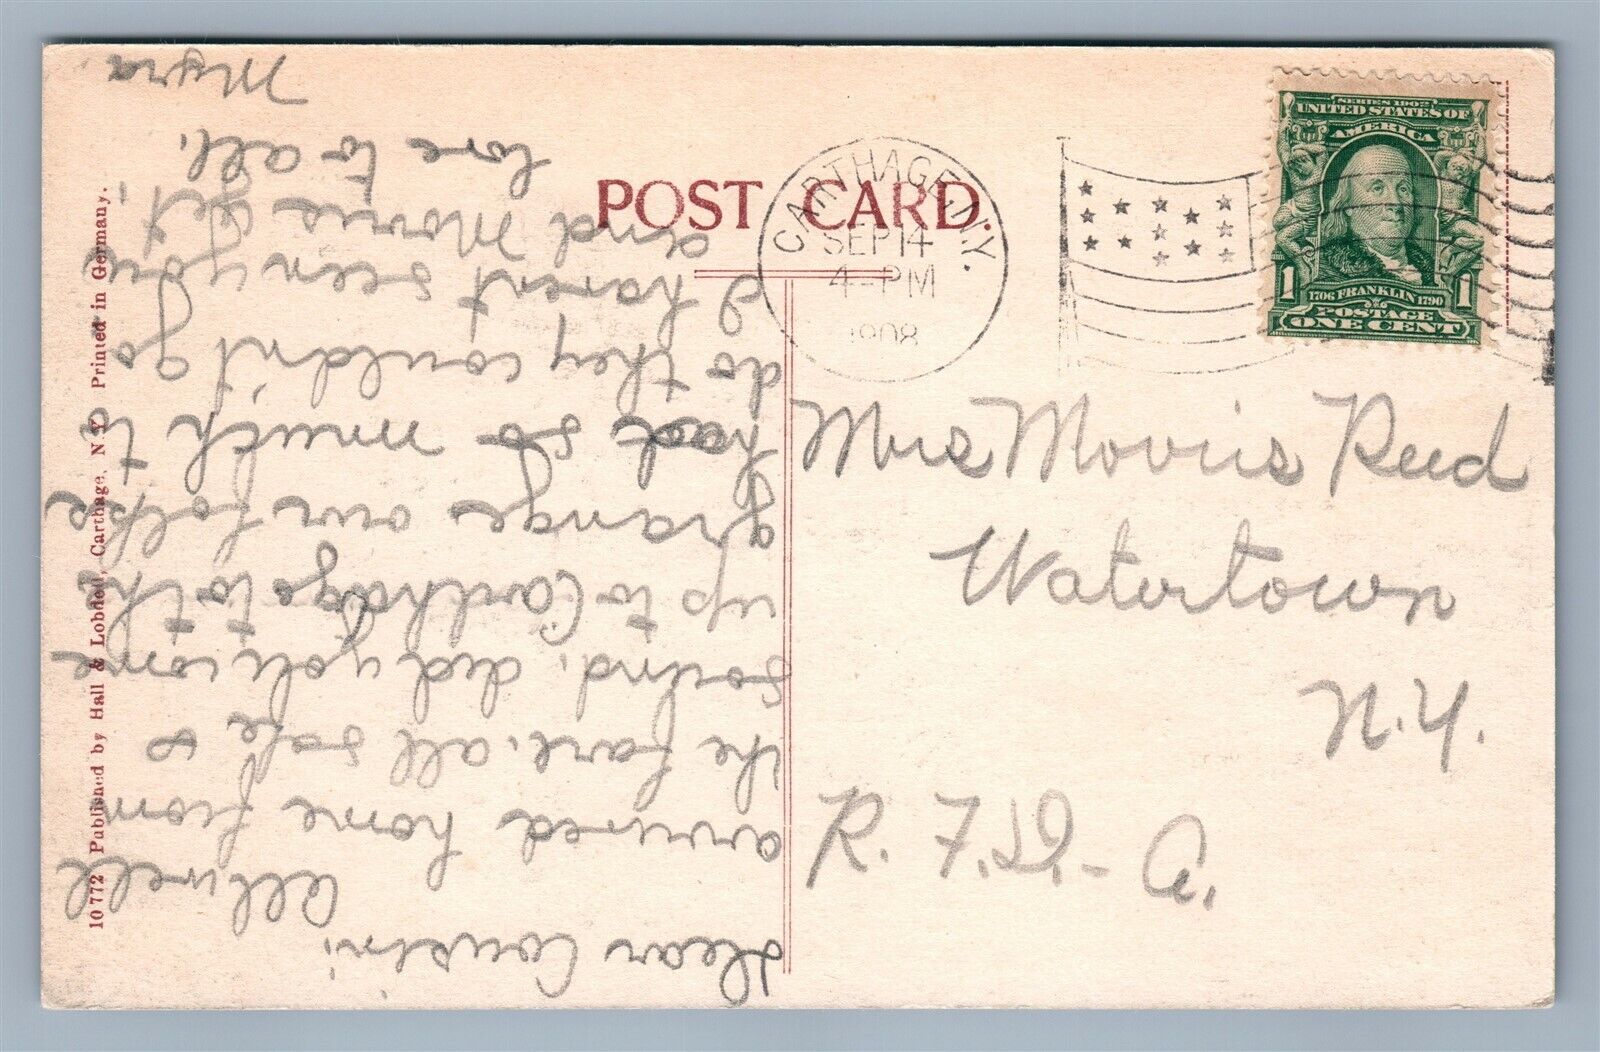 POST CARD.
CARTHAGE, N.Y.
SEP 14
4-PM
1908
SERIES 1902
UNITED STATES OF
AMERICA
1 1706 FRANKLIN 1790 1
POSTAGE
ONE CENT
Mrs Morris Reed
Watertown
N.Y.
R. F. D. - A.
Dear Cousin;
All well
arrived home from
the fare, all safe &
sound, did you come
up to Carthage to the
grange our folks
had so much to
do they couldn't go
I havent seen you
and Morris yet.
love to all.
Myra
10772 Published by Hall & Lobdell, Carthage, N Y Printed in Germany.